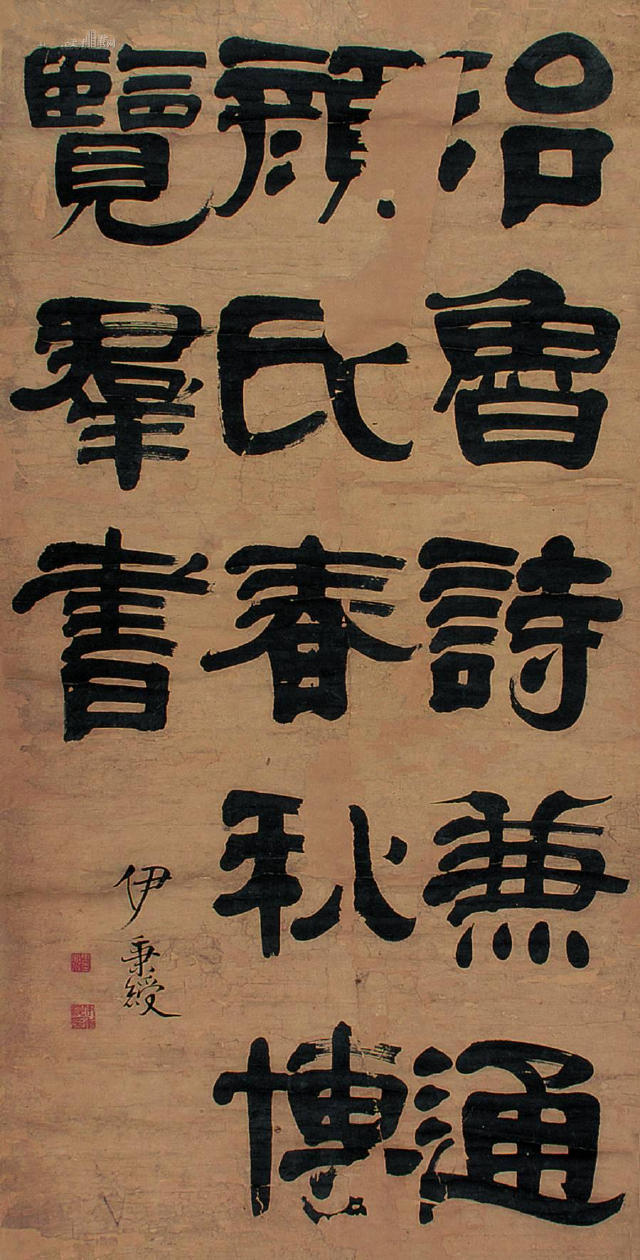 治魯詩兼通
顏氏春秋博
覽羣書
伊秉綬